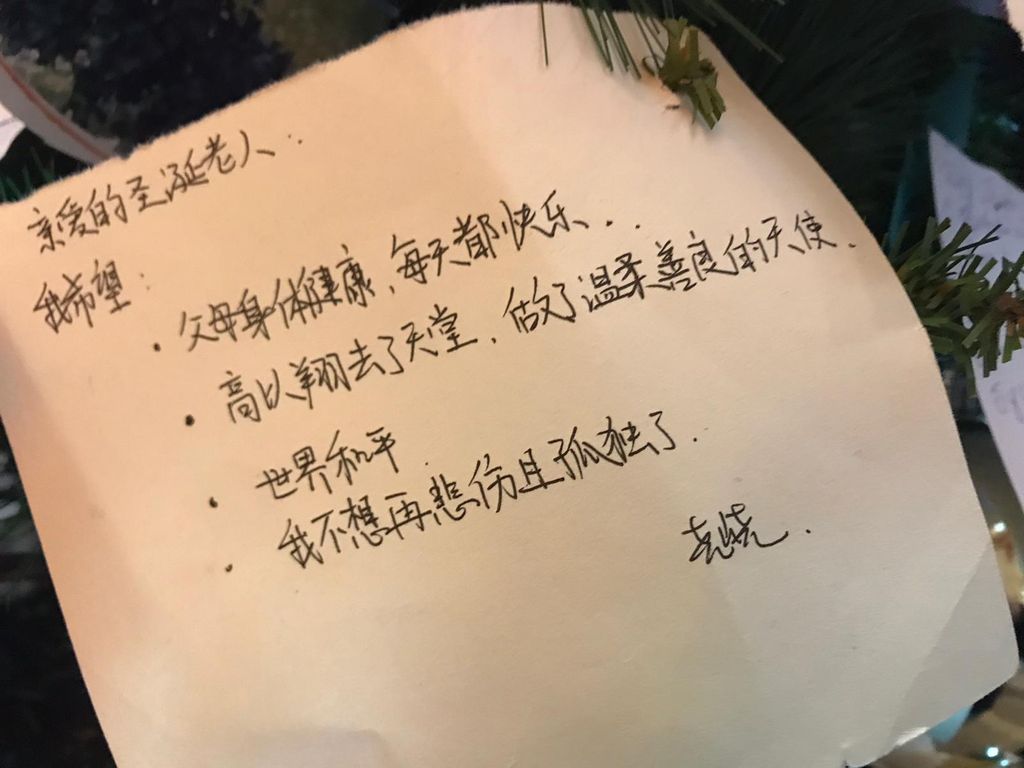 亲爱的圣诞老人：
我希望：
· 父母身体健康，每天都快乐..
· 高以翔去了天堂，做了温柔善良的天使.
· 世界和平.
· 我不想再悲伤且孤独了.